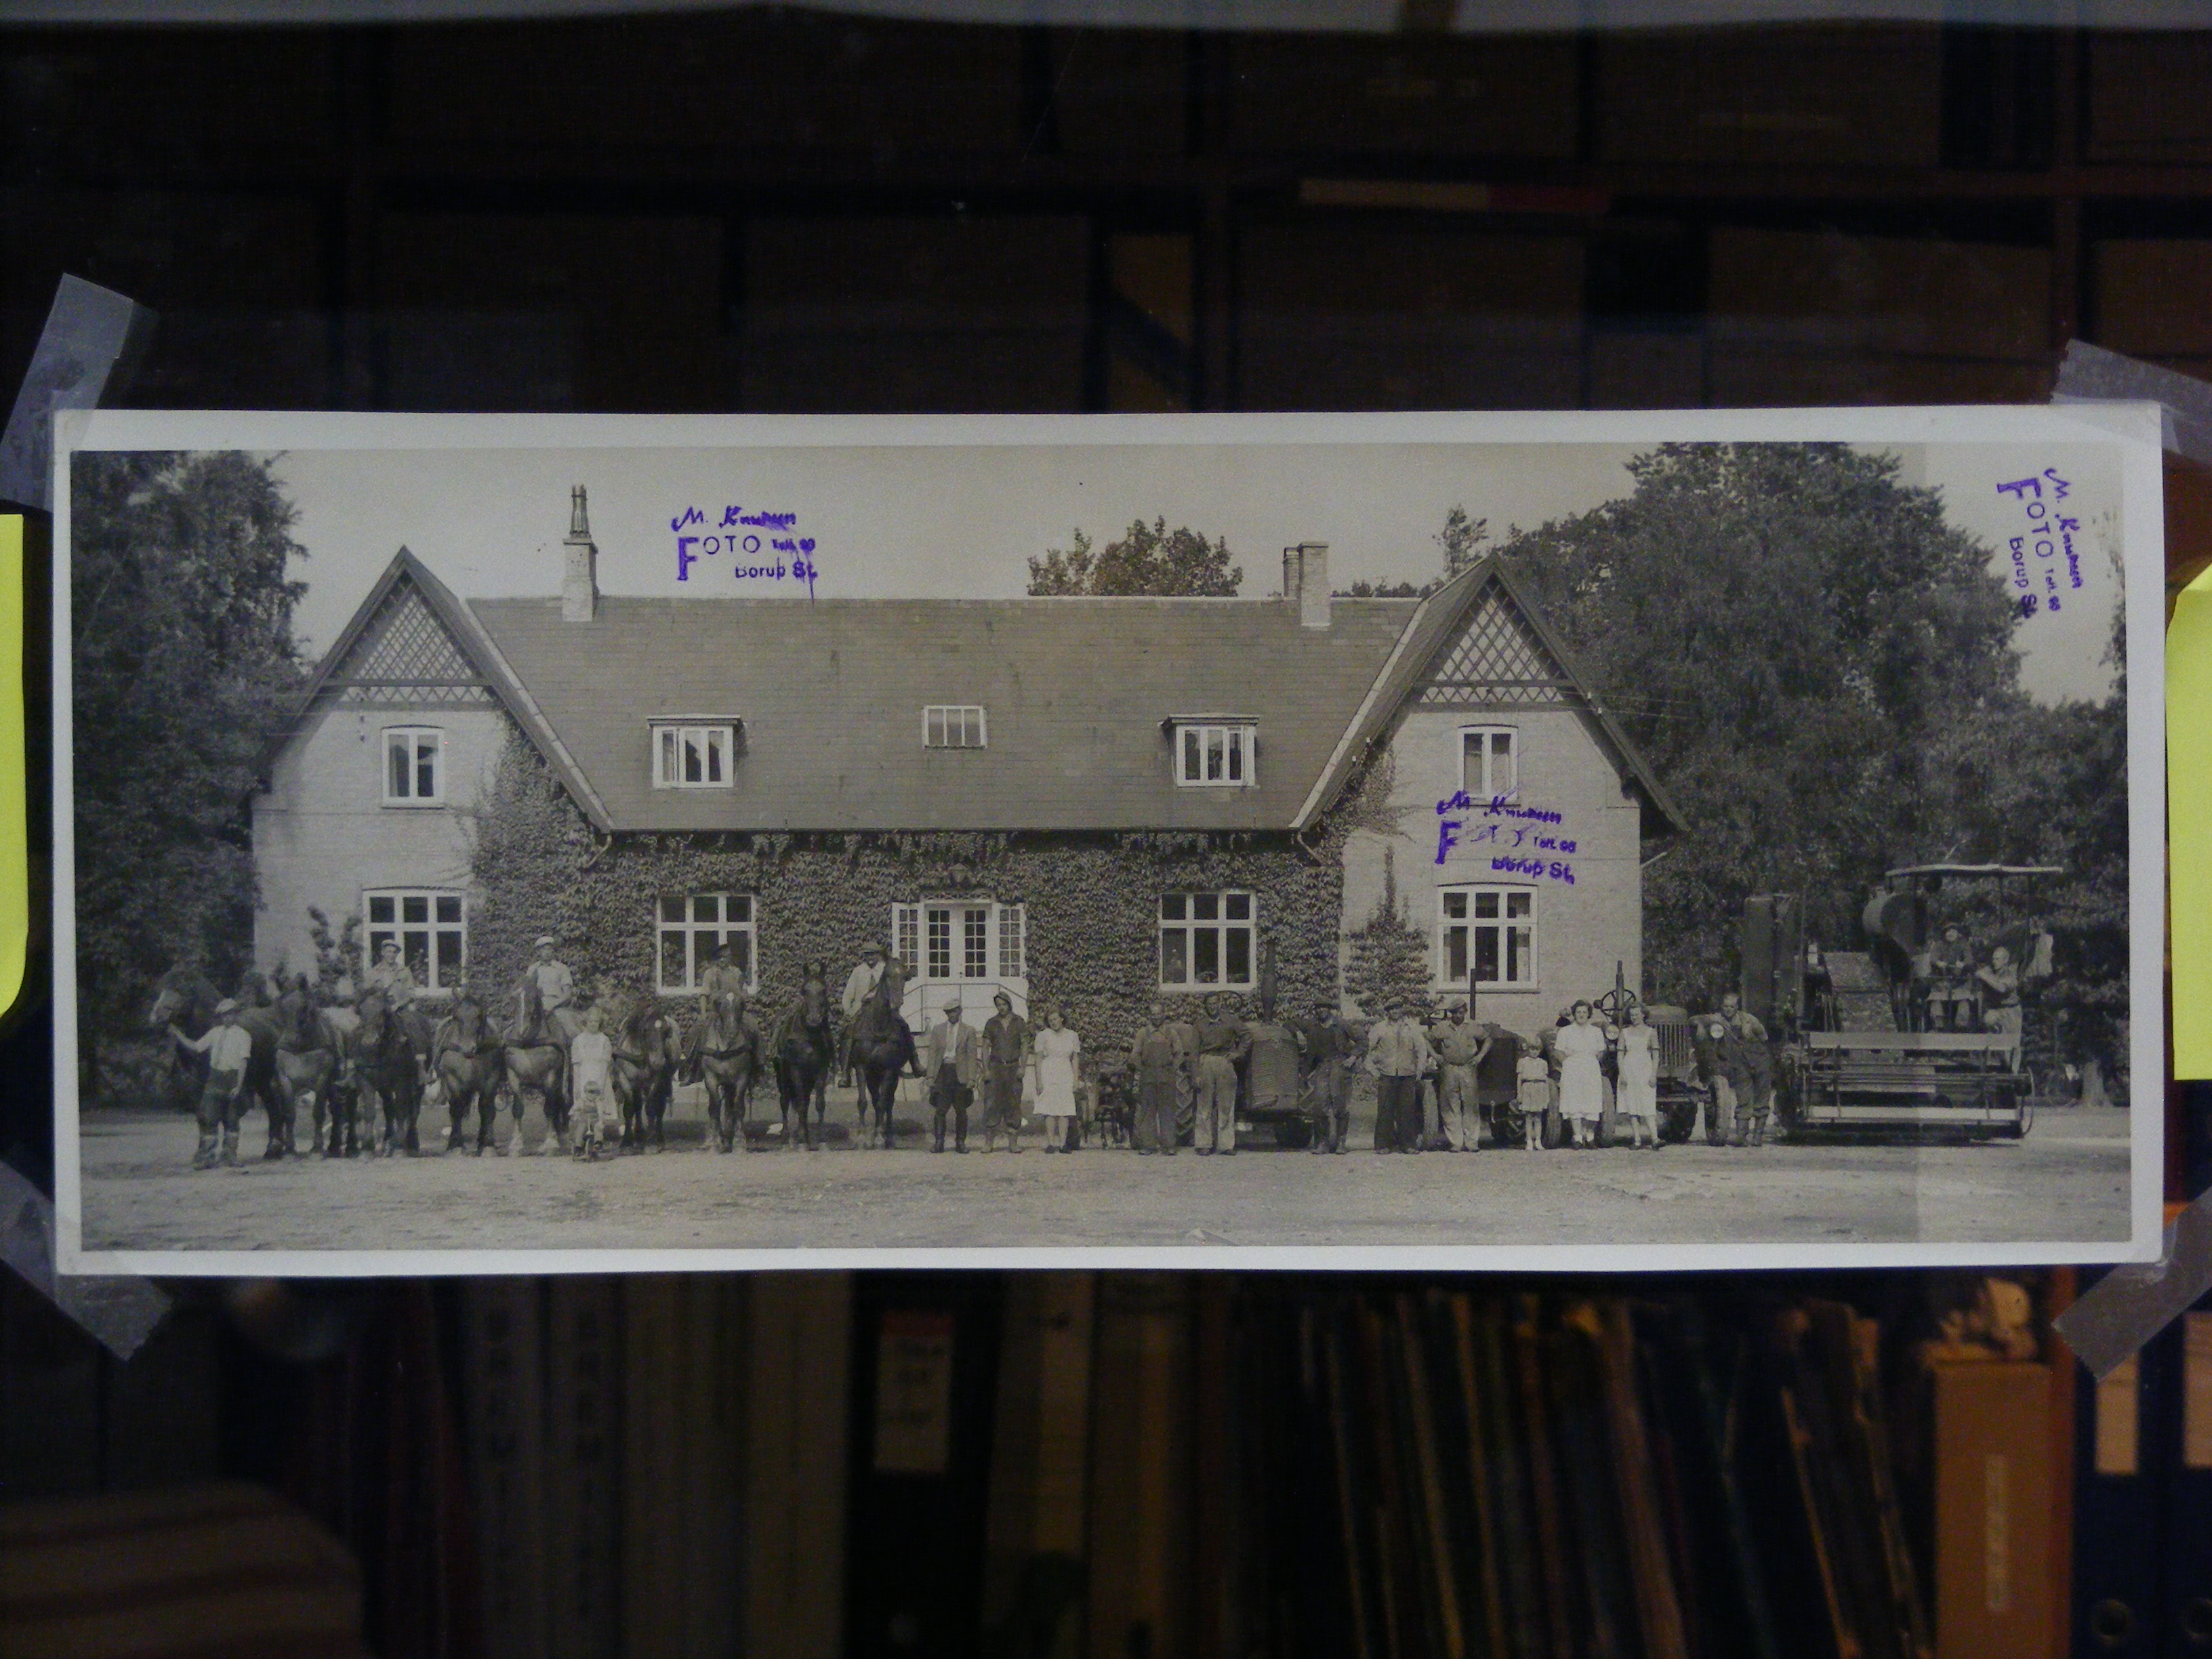 M. Knudsen
FOTO Telf. 90
Borup St.
M. Knudsen
FOTO Telf. 90
Borup St.
M. Knudsen
F Telf. 90
Borup St.